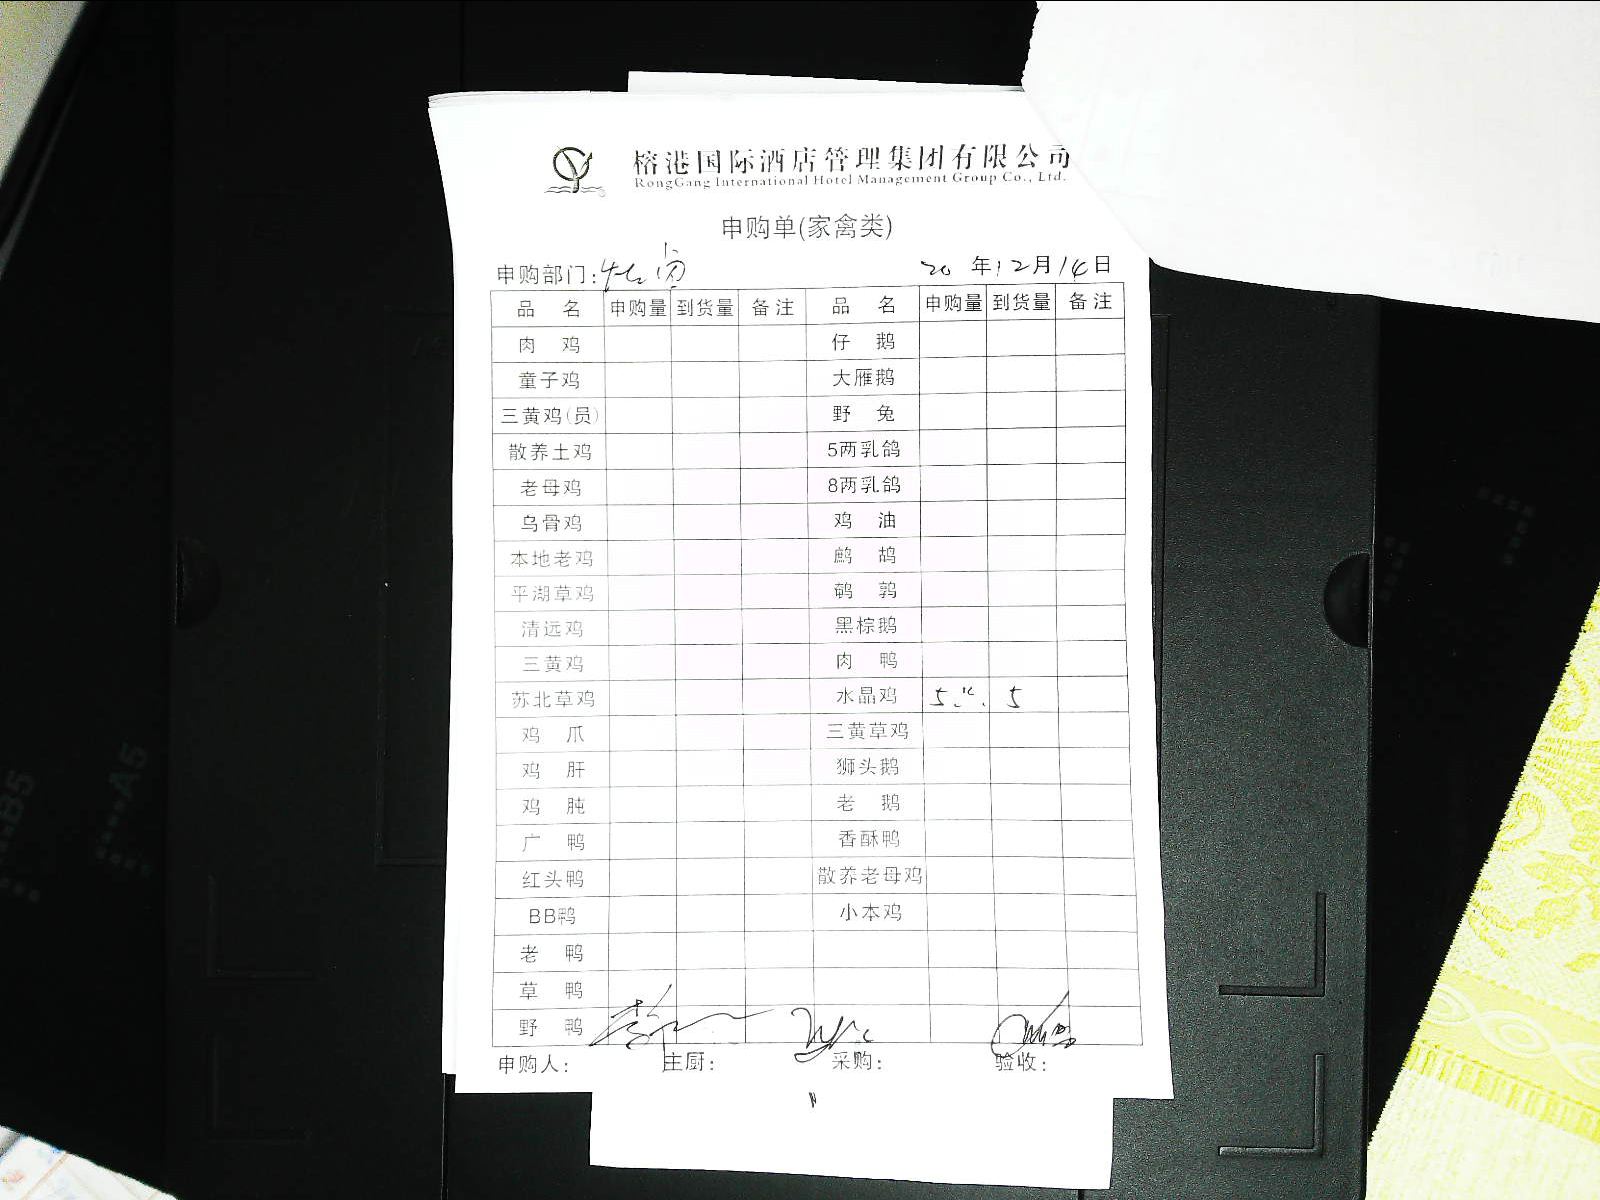 榕港国际酒店管理集团有限公司
RongGang International Hotel Management Group Co., Ltd.
申购单(家禽类)
申购部门: 20 年12月14日
品 名 申购量 到货量 备注 品 名 申购量 到货量 备注
肉 鸡 仔 鹅
童子鸡 大雁鹅
三黄鸡(员) 野 兔
散养土鸡 5两乳鸽
老母鸡 8两乳鸽
乌骨鸡 鸡 油
本地老鸡 鹧 鸪
平湖草鸡 鹌 鹑
清远鸡 黑棕鹅
三黄鸡 肉 鸭
苏北草鸡 水晶鸡 5 5
鸡 爪 三黄草鸡
鸡 肝 狮头鹅
鸡 肫 老 鹅
广 鸭 香酥鸭
红头鸭 散养老母鸡
BB鸭 小本鸡
老 鸭
草 鸭
野 鸭
申购人: 主厨: 采购: 验收:
B5
A5